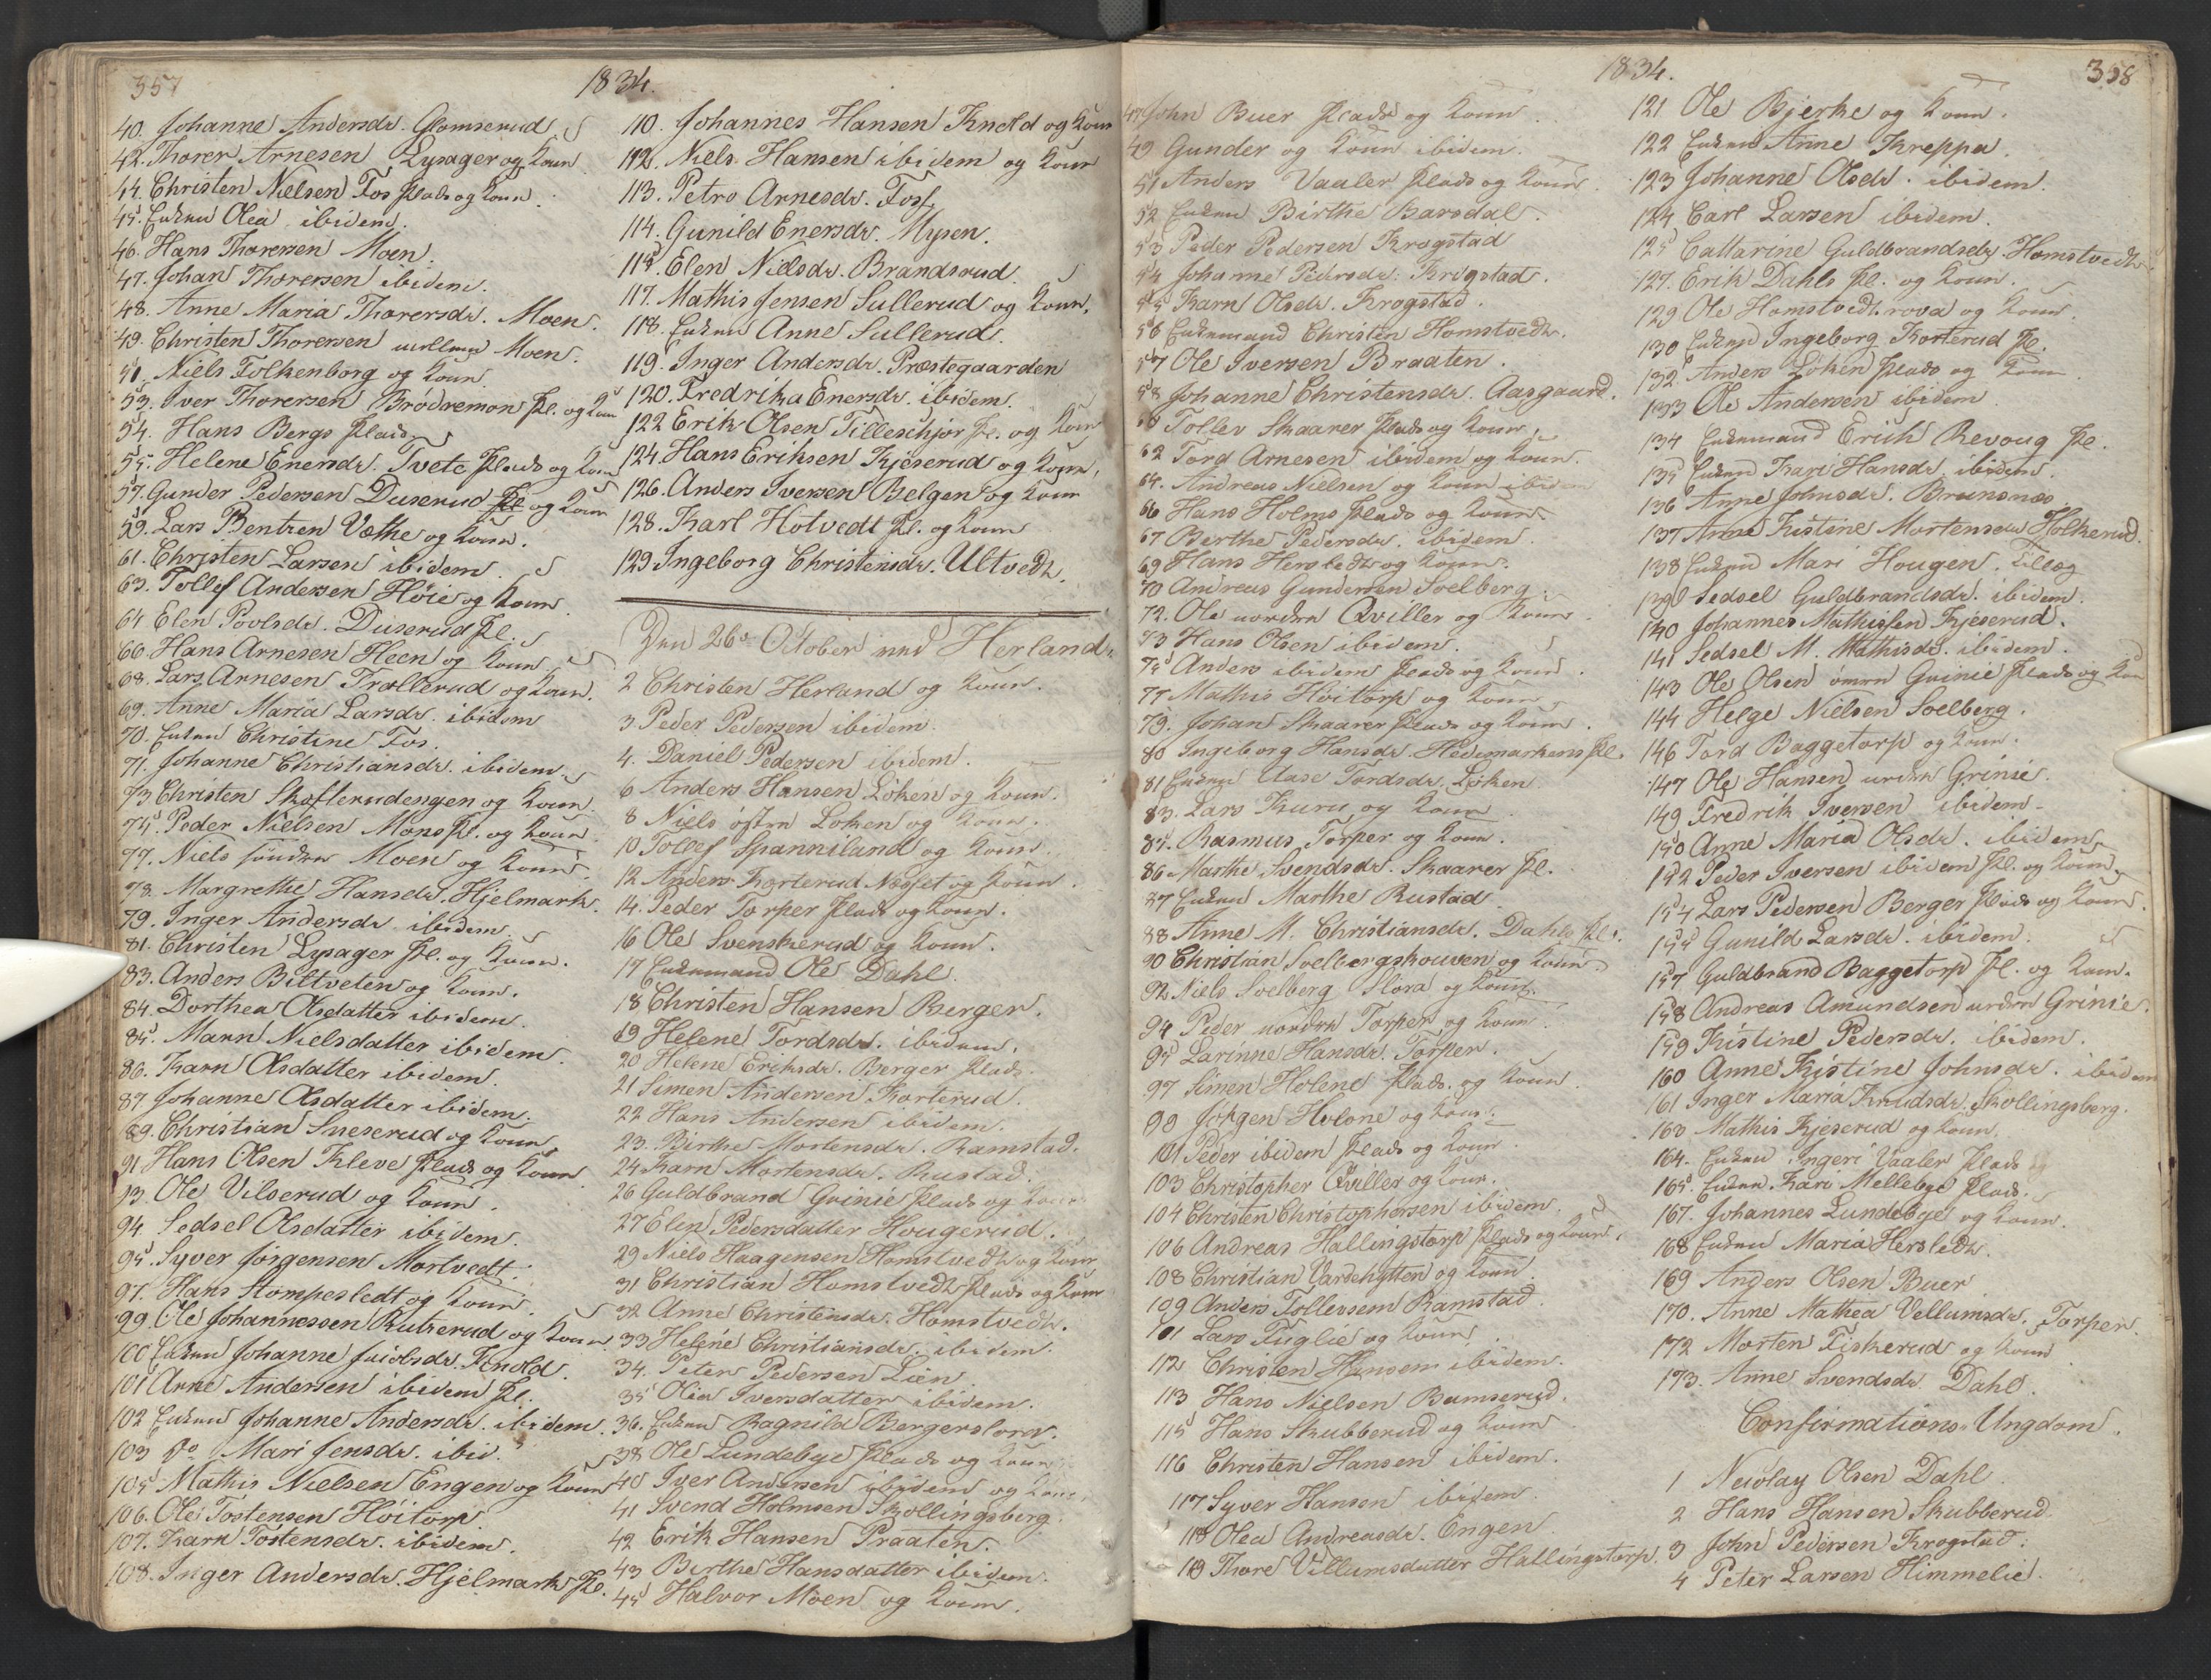 357
1834.
40. Johanne Andersdr. Glomserud
42. Thorer Arnesen Lysager og Koun
44. Christen Nielsen Fos Plads og Koun.
45. Enken Olea ibidem.
46. Hans Thorersen Moen.
47. Johan Thorersen ibidem.
48. Anne Maria Thorersdr. Moen.
49. Christen Thorersen mellem Moen.
51. Niels Folkenborg og Koun
53. Iver Thorersen Brödremon Pl. og Koun
54. Hans Bergs Plads
55. Helene Enersdr. Tvete Plads og Koun
57. Gunder Pedersen Duserud Pl og Koun
59. Lars Bentzen Væthe og Koun.
61. Christen Larsen ibidem.
63. Tollef Andersen Höie og Koun.
64 Elen Povlsdr. Duserud Pl.
66. Hans Arnesen Heen og Koun
68. Lars Arnesen Trollerud og Koun.
69. Anne Maria Larsdr. ibidem
70. Enken Christine Fos.
71. Johanne Christiansdr. ibidem.
73 Christen Skofterudengen og Koun
75. Peder Nielsen Mons Pl. og Koun
77. Niels söndre Moen og Koun.
78. Margrethe Hansdr. Hjelmark.
79. Inger Andersdr. ibidem
81. Christen Lysager Pl. og Koun.
83. Anders Biltveten og Koun.
84. Dorthea Olsdatter ibidem.
85. Marn Nielsdatter ibidem.
86. Karn Olsdatter ibidem.
87 Johanne Olsdatter ibidem.
89. Christian Sneserud og Koun
91 Hans Olsen Kleve Plads og Koun
93. Ole Vilserud og Koun.
94. Sedsel Olsdatter ibidem.
95. Syver Jörgensen Mortvedt.
97. Hans Stompesledt og Koun.
99. Ole Johannessen Rutzerud og Koun
100 Enken Johanne Jacobsdr. Knold.
101 Arne Andersen ibidem Pl.
102 Enken Johanne Andersdr. ibidem.
103 Do. Mari Jensdr. ibid.
105 Mathis Nielsen Engen og Koun
106. Ole Tostensen Höitorp
107. Karn Tostensdr. ibidem.
108. Inger Andersdr. Hjelmark Pl.
110. Johannes Hansen Knold og Koun
112. Niels Hansen ibidem og Koun
113. Petro Arnesdr. Fos.
114. Gunild Enersdr. Mysen.
115. Elen Nielsdr. Brandsrud.
117. Mathis Jensen Sullerud og Koun.
118. Enken Anne Sullerud.
119. Inger Andersdr. Præstegaarden
120. Fredrika Enersdr. ibidem.
122 Erik Olsen Tilleschjor Pl. og Koun
124. Hans Eriksen Kjeserud og Koun.
126. Anders Iversen Belgen og Koun
128. Karl Hotvedt Pl. og Koun
129 Ingeborg Christensdr. Ultvedt.
Den 26de October ved Herland.
2 Christen Herland og Koun.
3 Peder Pedersen ibidem.
4. Daniel Pedersen ibidem.
6 Anders Hansen Löken og Koun.
8 Niels östre Löken og Koun.
10 Tollef Spanniland og Koun.
12 Anders Korterud Næsset og Koun.
14. Peder Torper Plads og Koun.
16 Ole Svenskerud og Koun.
17 Enkemand Ole Dahl.
18 Christen Hansen Berger.
19 Helene Tordsdr. ibidem.
20 Helene Eriksdr. Berger Plads.
21 Simen Andersen Korterud.
22 Hans Andersen ibidem.
23. Birthe Mortensdr. Ramstad.
24 Karn Mortensdr. Rustad.
26 Guldbrand Grinie Plads og Koun
27 Elen Pedersdatter Hougerud.
29 Niels Haagensen Homstvedt og Koun
31 Christian Homstvedt Plads og Koun
32 Anne Christensdr. Homstvedt.
33 Helene Christiansdr. ibidem.
34. Peter Pedersen Lien
35 Olia Iversdatter ibidem.
36. Enken Ragnild Bergerslora.
38 Ole Lundebye Plads og Koun
40 Iver Andersen ibidem og Koun.
41 Svend Holmsen Skollingsberg.
42 Erik Hansen Praaten.
43 Berthe Hansdatter ibidem.
45 Halvor Moen og Koun.
1834.
358
47 John Buer Plads og Koun.
49 Gunder og Koun ibidem.
51 Anders Vaaler Plads og Koun.
52 Enken Birthe Barsdal.
53 Peder Pedersen Krogstad
54 Johanne Pedersdr. Krogstad.
55 Karn Olsdr. Krogstad.
56 Enkemand Christen Homstvedt.
57 Ole Iversen Braaten.
58 Johanne Christensdr. Aasgaard.
60 Tollev Skaarer Plads og Koun.
62 Tord Arnesen ibidem og Koun.
64. Andreas Nielsen og Koun ibidem
66 Hans Holms Plads og Koun.
67 Berthe Pedersdr. ibidem.
69 Hans Hersledt og Koun.
70 Andreas Gundersen Soelberg.
72. Ole nordre Qviller og Koun.
73 Hans Olsen ibidem.
75 Anders ibidem Plads og Koun.
77 Mathis Höitorp og Koun
79. Johan Skaarer Plads og Koun.
80 Ingeborg Hansdr. Hedemarkens Pl.
81 Enken Aase Tordsdr. Löken.
83. Lars Kuru og Koun
85. Rasmus Torper og Koun.
86. Marthe Svendsdr. Skaarer Pl.
87 Enken Marthe Rustad
88 Anne M. Christiansdr. Dahls Pl.
90 Christian Soelbergskouven og Koun.
92 Niels Soelberg Slora og Koun.
94 Peder nordre Torper og Koun.
95 Larinne Hansdr. Torper.
97 Simen Holene Plads. og Koun.
99 Jörgen Holene og Koun.
101 Peder ibidem Plads og Koun.
103 Christopher Qviller og Koun.
104 Christen Christophersen ibidem.
106 Andreas Hallingstorp Plads og Koun.
108 Christian Vardehytten og Koun
109 Anders Tollevsen Ramstad.
101 Lars Fuglie og Koun.
112 Christen Hansen ibidem.
113 Hans Nielsen Bamserud.
115 Hans Skubberud og Koun
116 Christen Hansen ibidem.
117 Syver Hansen ibidem
118 Olea Andreasdr. Engen
119 Thore Villumsdatter Hallingstorp.
121 Ole Bjerke og Koun.
122 Enken Anne Kreppa.
123 Johanne Olsdr. ibidem.
124 Carl Larsen ibidem.
125 Cattarine Guldbrandsdr. Homstvedt.
127. Erik Dahls Pl. og Koun.
129 Ole Homstvedtrova og Koun.
130 Enken Ingeborg Korterud Pl.
132 Anders Löken Plads og Koun
133 Ole Andersen ibidem
134 Enkemand Erich Revoug Pl.
135 Enken Kari Hansdr. ibidem.
136 Anne Johnsdr. Brunsnæs
137 Anne Kistine Mortensdr. Holkerud.
138 Enken Mari Hougen. Tillæg
139 Sedsel Guldbrandsdr. ibidem.
140 Johannes Mathissen Kjeserud.
141 Sedsel M. Mathisdr. ibidem.
143 Ole Olsen övre Grinie Plads og Kon
144 Helge Nielsen Soelberg.
146 Tord Baggetorp og Koun.
147 Ole Hansen nedre Grinie.
149 Fredrik Iversen ibidem.
150 Anne Maria Olsdr. ibidem
152 Peder Iversen ibidem Pl. og Koun
154 Lars Pedersen Berger Plads og Koun.
155 Gunild Larsdr. ibidem.
157 Guldbrand Baggetorp Pl. og Koun.
158 Andreas Amundsen nedre Grinie.
159 Kistine Pedersdr. ibidem.
160 Anne Kistine Johnsdr. ibidem
161 Inger Maria Knudsdr. Skollingsberg.
163 Mathis Kjeserud og Koun.
164. Enken Ingeri Vaaler Plads
165 Enken Kari Mellebye Plads.
167. Johannes Lundebye og Koun.
168 Enken Maria Hersledt.
169 Anders Olsen Buer
170. Anne Mathea Vellumsdr. Torper.
172 Morten Fiskerud og Koun
173. Anne Svendsdr. Dahl.
Confirmations-Ungdom.
1 Nicolay Olsen Dahl
2 Hans Hansen Skubberud.
3 John Pedersen Krogstad.
4 Peter Larsen Himmelie.